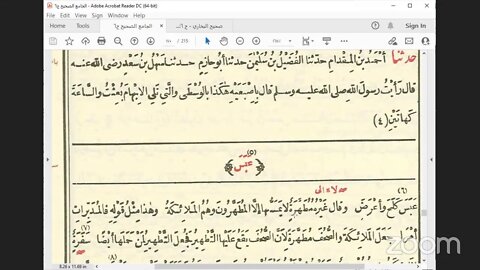 الجامع الصحيح ج٦ - Adobe Acrobat Reader DC (64-bit)
Sign In
حدثنا أحمد بن المقدام حدثنا الفضيل بن سليمن حدثنا أبو حازم حدثنا سهل بن سعد رضى الله عنه
قال رأيت رسول الله صلى الله عليه وسلم قال بإصبعيه هكذا بالوسطى والتي تلى الإبهام بعثت والساعة
كهاتين (٤)
(٥)
عبس
(٦)
عبس كلح وأعرض وقال غيره مطهرة لا يمسها إلا المطهرون وهم الملائكة وهذا مثل قوله فالمدبرات
أمرا جعل الملائكة والصحف مطهرة لأن الصحف يقع عليها التطهير فجعل التطهير لمن حملها أيضا سفرة
(٧)
(٨)
8.26 x 11.68 in
zoom